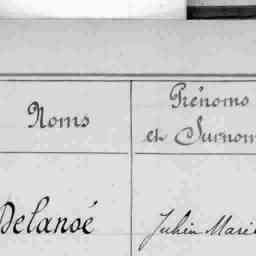 Noms
Prénoms
et Surnom
Delanoé
Julien Marie